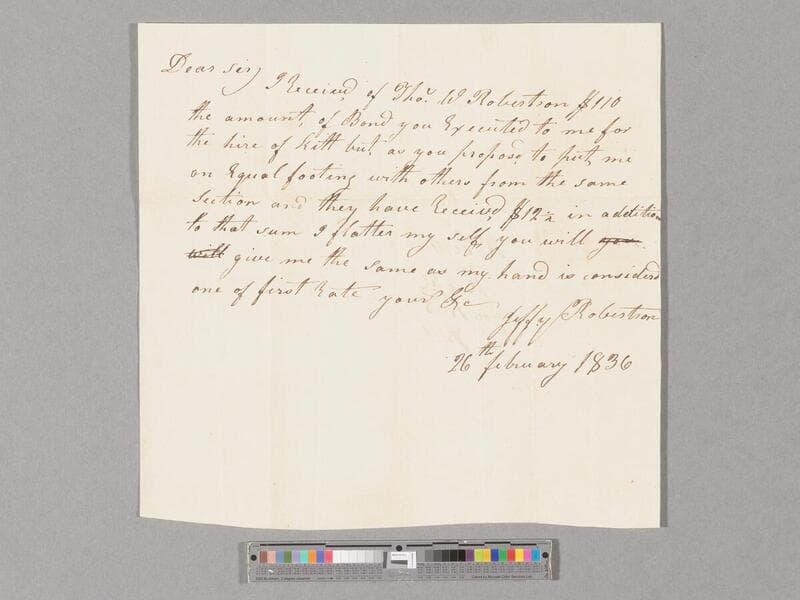 Dear Sir,
I Receivd of Thos. W Robertson $110
the amount of Bond you Executed to me for
the hire of Kitt but as you propose to put me
on Equal footing with others from the same
Section and they have Receivd $12½ in addition
to that sum I flatter my self you will you
will give me the same as my hand is considerd
one of first Rate yours &c
Jeffy Robertson
26th february 1836